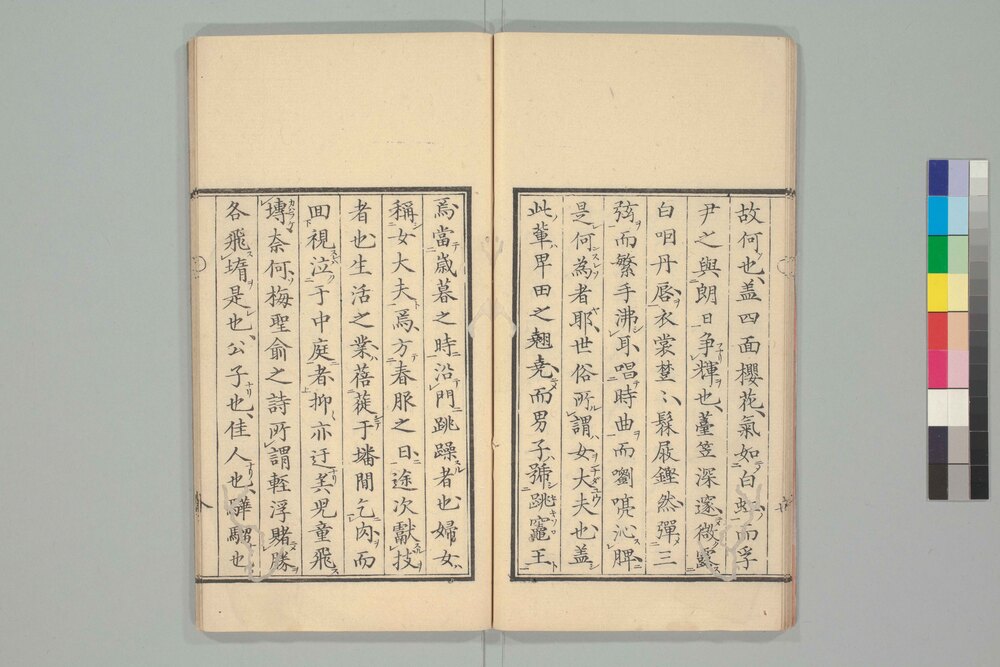 故何也、盖四面櫻花、氣如白虹而孚
尹之與朗日爭輝也、薹笠深邃微露
白咽丹唇衣裳楚〻、鬆屐鏗然彈三
弦而繁手沸耳、唱時曲而嚠喨沁脾
是何為者耶、世俗所謂女大夫也盖
此輩畢田之翹堯而男子號跳竈王
焉當歳暮之時沿門跳躁者也婦女
稱女大夫焉方春服之日途次獻技
者也生活之業蓓蓰于墦間乞肉而
回視泣于中庭者抑亦迂矣児童飛
塼奈何梅聖俞之詩所謂軽浮賭勝
各飛堶是也、公子也、佳人也、驊騮也